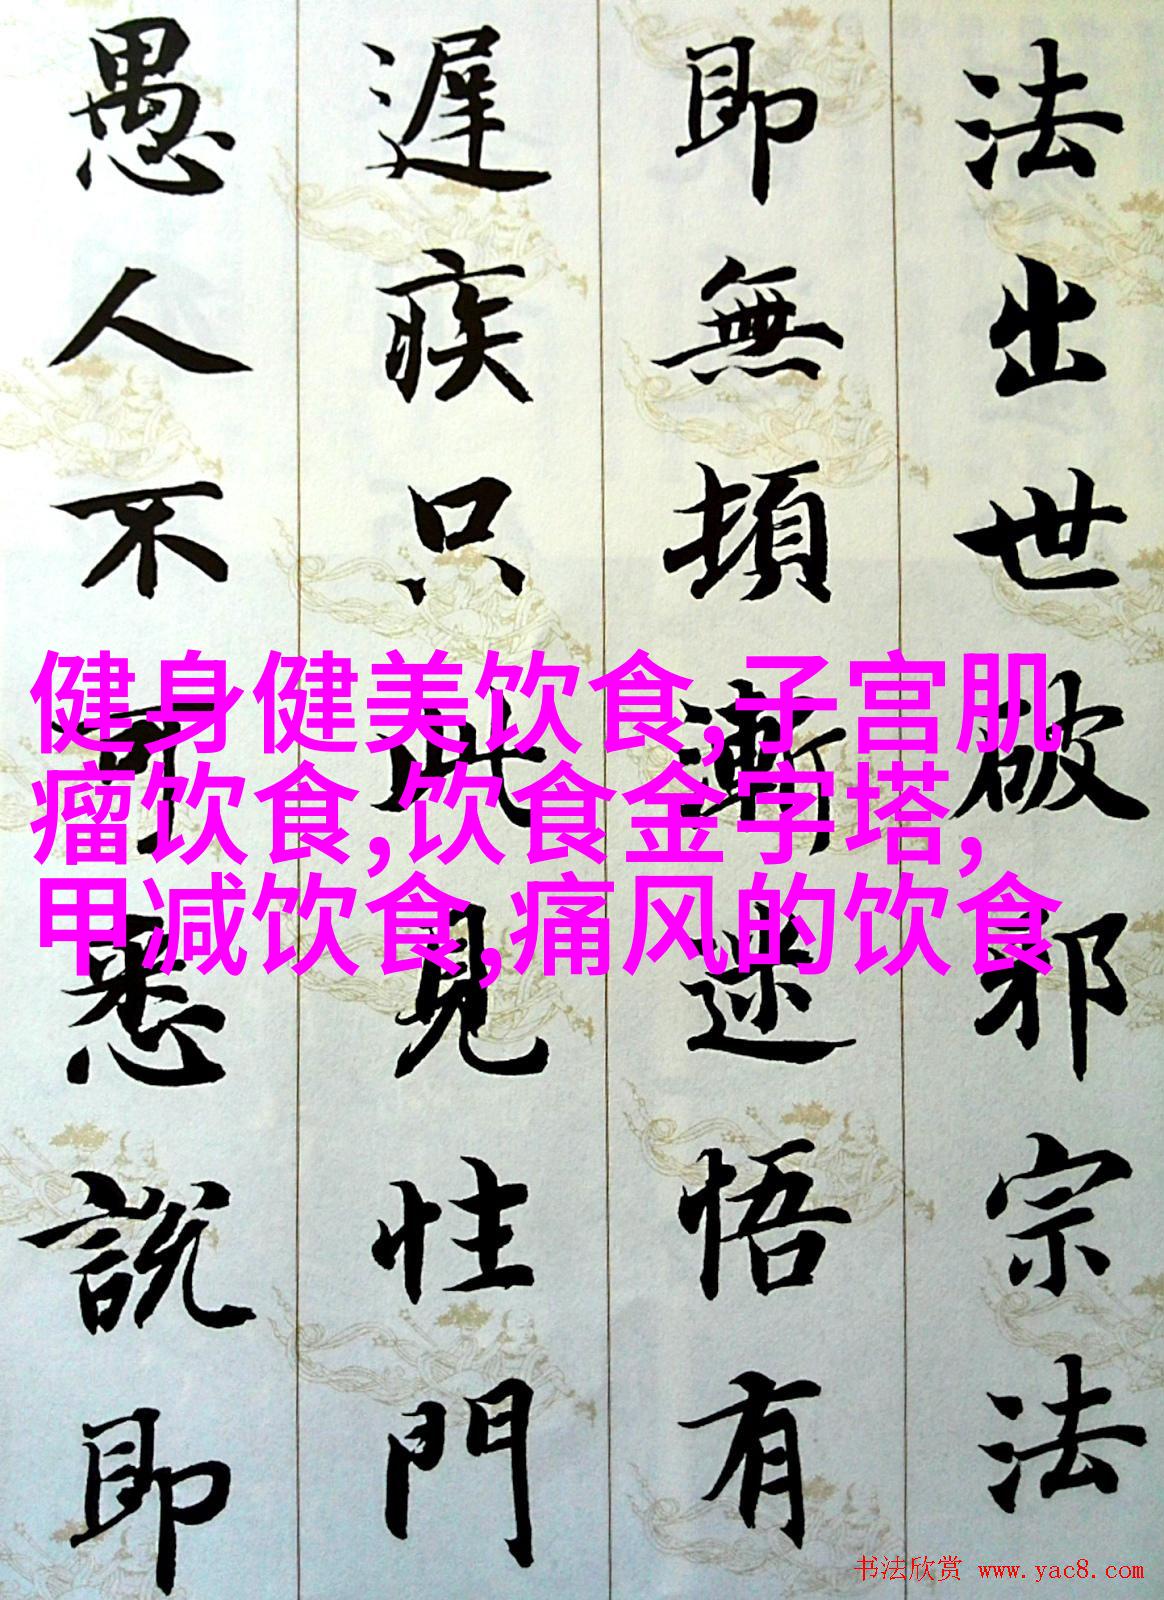 法出世破邪宗法
即無頓漸迷悟有
遲疾只此見性門
愚人不可悉說即
健身健美饮食,子宫肌
瘤饮食,饮食金字塔,
甲减饮食,痛风的饮食
书法欣赏 www.yac8.com